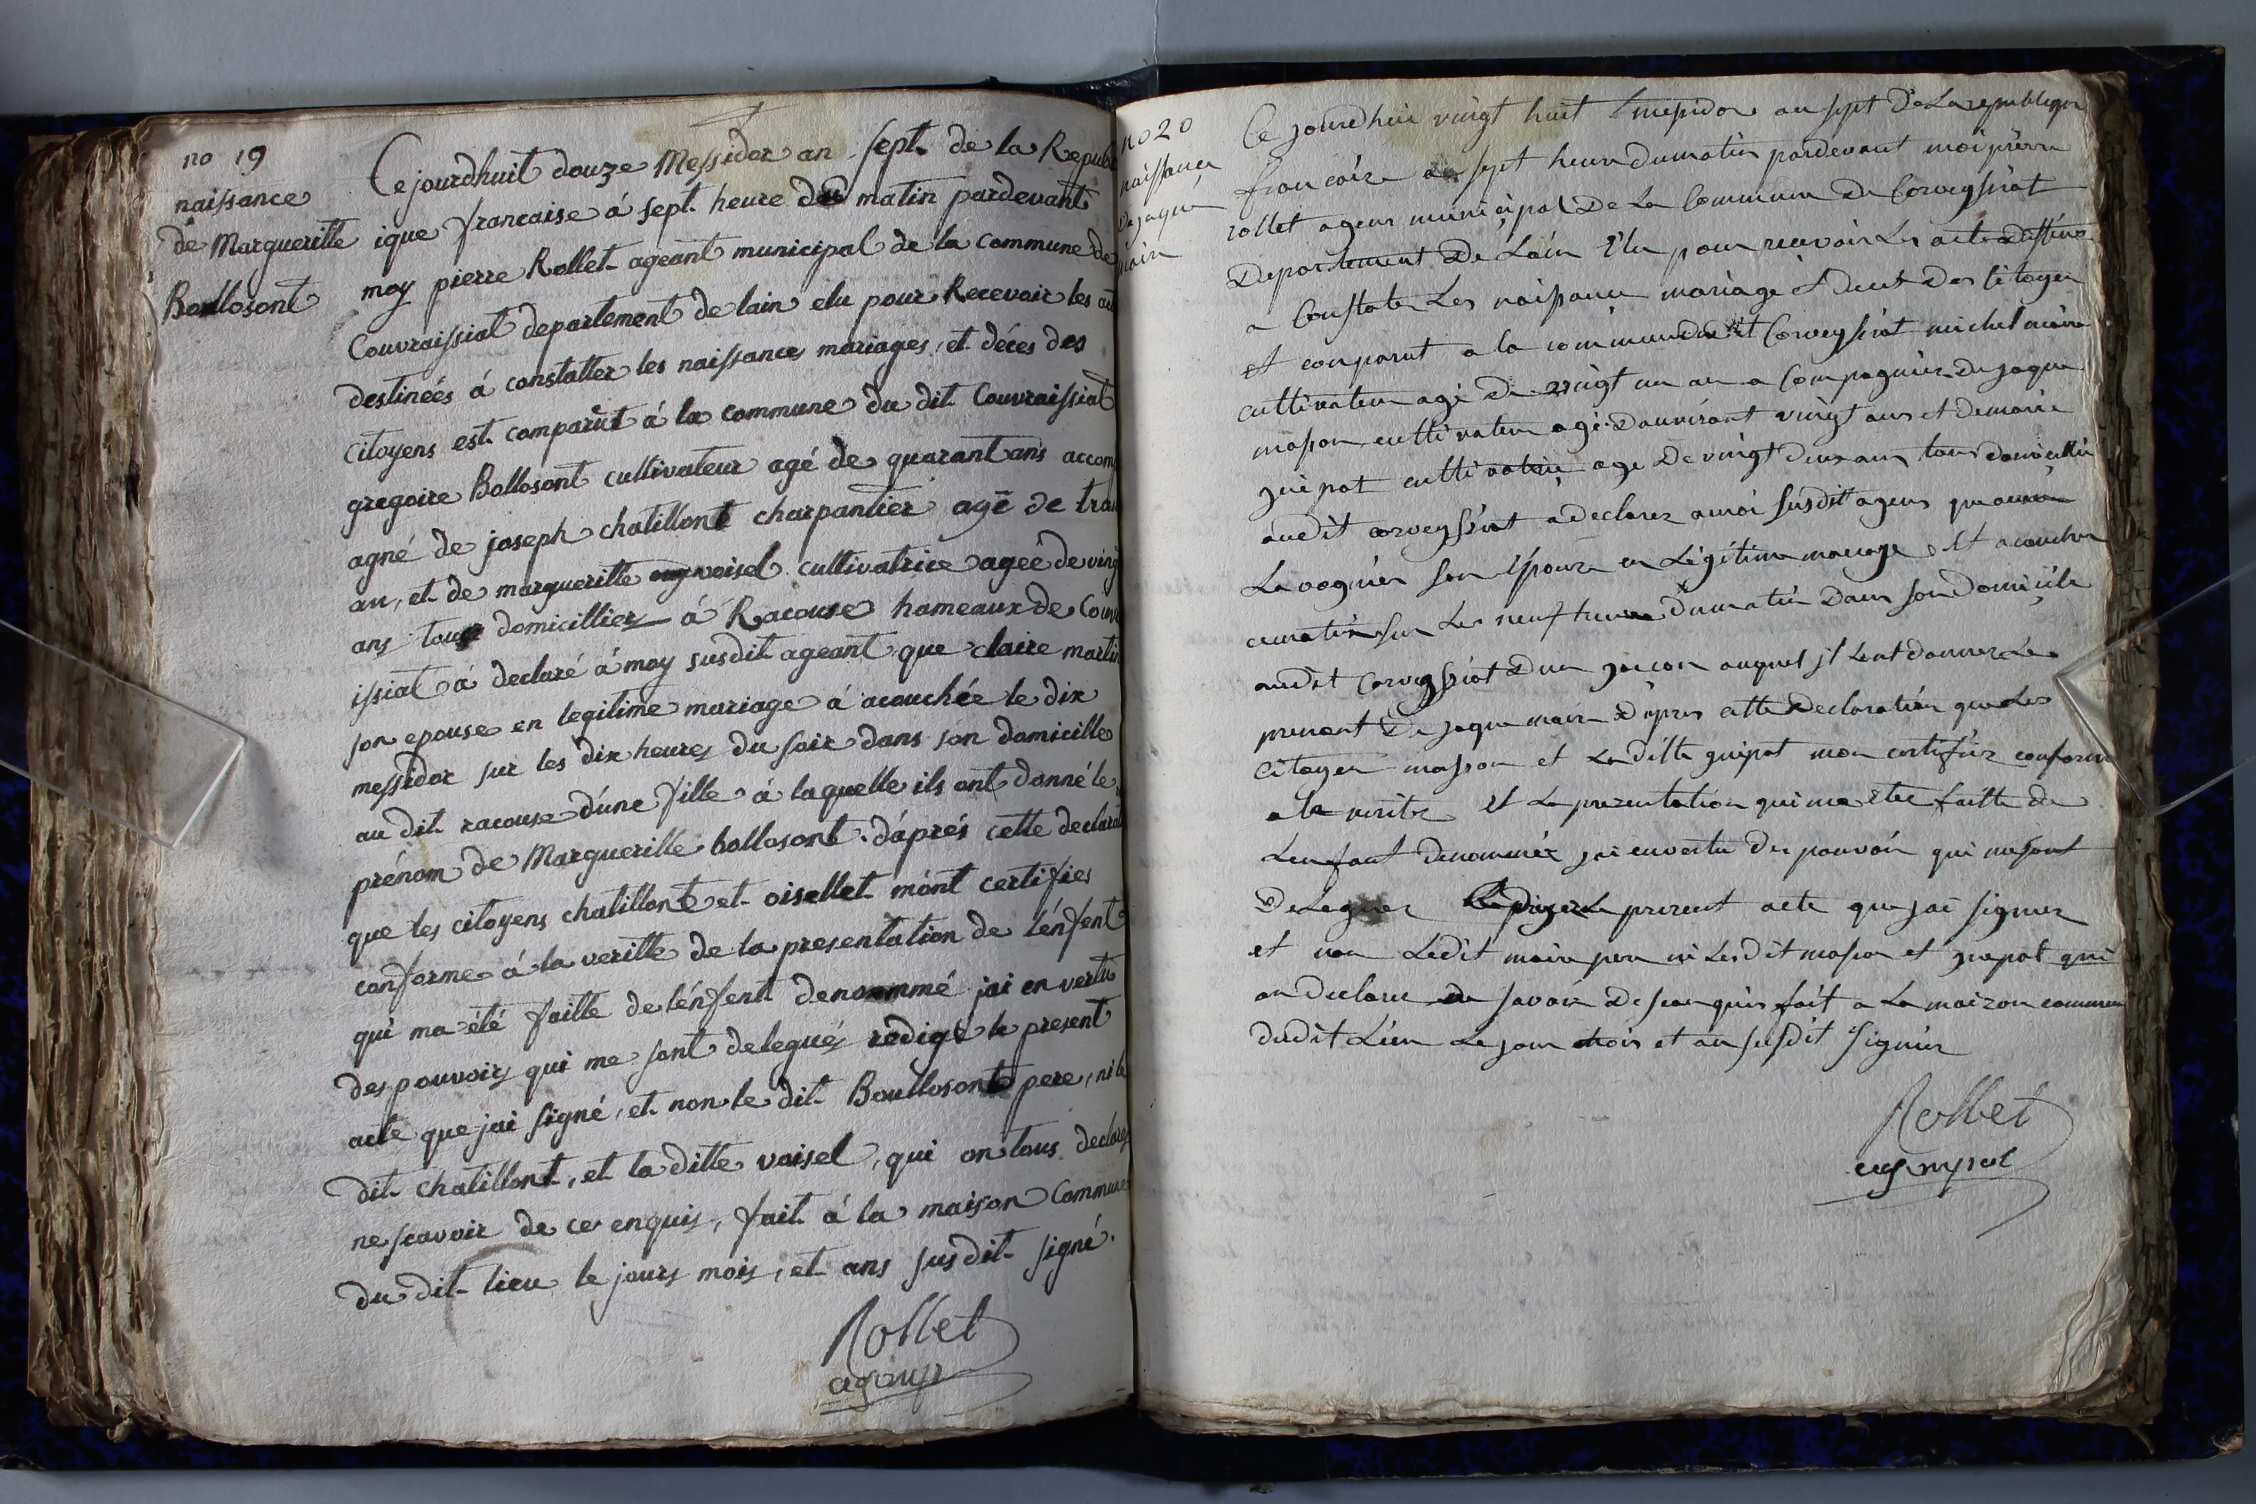 no 19
naissance
de Margueritte
Bollosont
Ce jourdhuit douze Messidor an sept de la Republ
ique francaise á sept heure du matin pardevant
moy pierre Rollet ageant municipal de la commune de
Couvraissiat departement de lain elu pour Recevoir les
destineés á constatter les naissances mariages, et décés des
citoyens est comparut á la commune du dit Couvraissiat
gregoire Bollosont cultivateur agé de quarant ans accomp
agné de joseph chatillont charpantier agé de
an, et de margueritte voisel cultivatrice ageé de ving
ans tous domicilliers á Racouse hameaux de Couvra
issiat á declaré á moy susdit ageant que claire martin
son epouse en legitime mariage á acouchée le dix
messidor sur les dix heures du soir dans son domicille
au dit racouse d'une fille á laquelle ils ont donné le
prénom de Marguerille bollosont d'aprés cette declarat
que les citoyens chatillont et oisellet mónt certifies
conforme á la veritte de la presentation de lénfent
qui ma été faitte de lénfent denommé jai en vertu
des pouvoirs qui me sont delegués redigé le present
acte que jai signé, et non le dit Boullosont pere, ni le
dit chatillont, et la ditte voisel, qui on tous declarés
ne scavoir de ce enquis, fait á la maison Commune
du dit lieu le jours mois, et ans sus dit signé.
Rollet
no 20
naissance
de jaque
Ce jourdhui vingt huit messidor an sept De La republique
francoise a sept heure du matin pardevant moi pierre
rollet agens municipal De La Commune De Corveyssiat
Departement De Lain Elu pour recevoir Les acte Destine
a Constate Les naissance mariage et Deces Des Citoyen
et comparut a la commune du dit Corveyssiat michel
cultivateur agé De vingt un an a Compagnier De jaque
masson cultivateur agé Danviront vingt ans et De marie
guipot cultivatrice age De vingt deux ans tous domicillie
audit corveyssiat a declarez a moi susdit agens que
son Epouze en Légitime mariage Et acouchee
ce matin sur Les neuf heure Du matin Dans son Domicile
audit Corveyssiat Dun garcon auquel jl Lont donner Le
prenont De jaque Dapres cette Declaration que Les
Citoyen masson et La ditte guipot mon certifier conforme
a la verite et La prezentation qui ma Etee faitte De
Lenfant Denommée jai en vertu Des pouvoir qui me sont
Deleguer Redigez Le prezent acte que jai signer
et non Ledit pere ni Lesdit masson et guipot qui
on declarer ne savoir De ce enquis fait a La maizon commune
dudit Lieu Le jour mois et an susdit Signier
Rollet